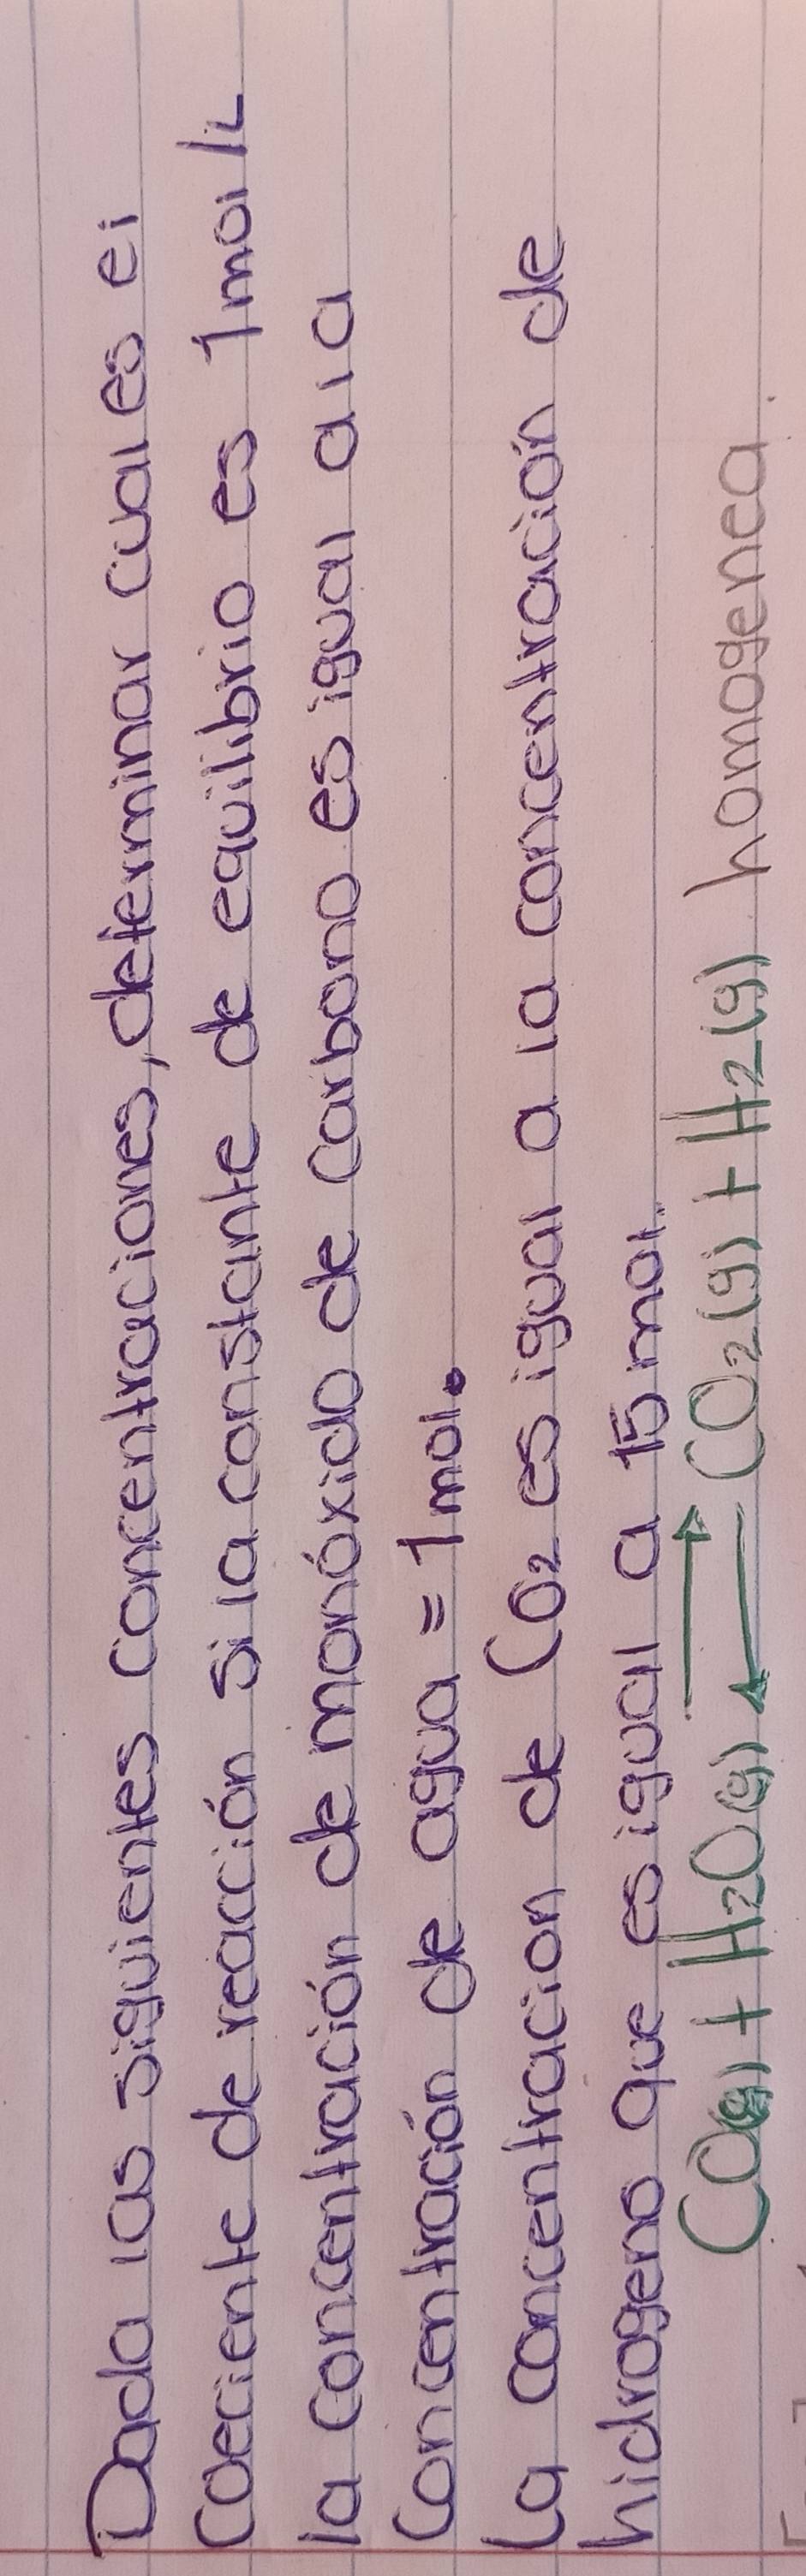 Dada las siguientes concentraciones, determinar cual es el
Coeciente de reacción si la constante de equilibrio es 1 mol/L
la concentración de monóxido de carbono es igual a la
Concentración de agua = 1 mol.
La concentracion de CO2 es igual a la concentración de
hidrogeno que es igual a 15 mol.
CO(g) + H2O(g) ⇄ CO2(g) + H2(g) homogenea.